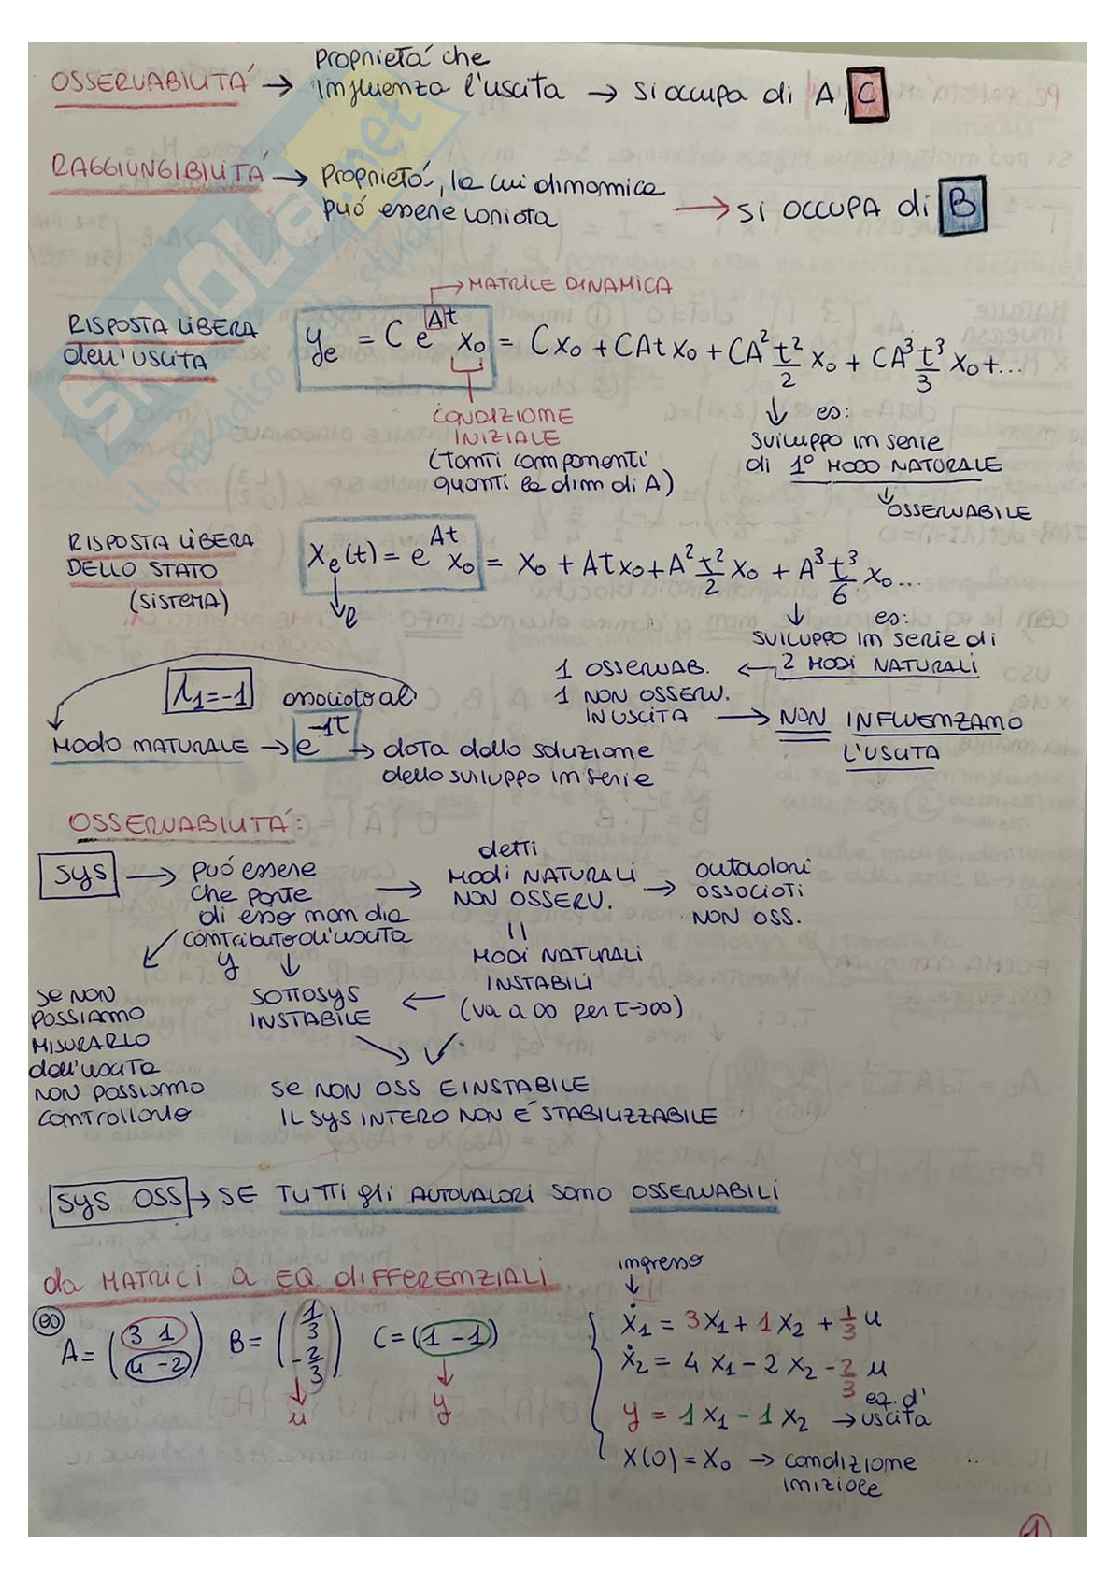 OSSERVABILITÁ → Proprietá che
influenza l'uscita → si occupa di A, C
RAGGIUNGIBILITÁ → Proprietá, la cui dinamica
puó essere variata → si OCCUPA di B
→ MATRICE DINAMICA
RISPOSTA LIBERA
dell'USCITA
yₑ = C e^{At} x₀ = Cx₀ + CAt x₀ + CA² t²/2 x₀ + CA³ t³/3 x₀ + ...
CONDIZIONE
INIZIALE
(Tanti componenti
quanti la dim di A)
↓ es:
sviluppo in serie
di 1° MODO NATURALE
↓ OSSERVABILE
RISPOSTA LIBERA
DELLO STATO
(SISTEMA)
xₑ(t) = e^{At} x₀ = x₀ + At x₀ + A² t²/2 x₀ + A³ t³/6 x₀ ...
↓ ℓ
↓ es:
SVILUPPO in serie di
2 MODI NATURALI
← 1 OSSERVAB.
1 NON OSSERV.
IN USCITA → NON INFLUENZAMO
L'USCITA
λ₁=-1 associato al
MODO NATURALE → e^{-1t} → data dalla soluzione
dello sviluppo in serie
OSSERVABILITÁ:
SYS → puó essere
che parte
di esso non dia
contributo all'uscita
y
→ detti
MODI NATURALI
NON OSSERV.
→ autovalori
associati
NON OSS.
||
MODI NATURALI
INSTABILI
(va a ∞ per t→∞)
← SOTTOSYS
INSTABILE
SE NON
POSSIAMO
MISURARLO
dall'uscita
NON POSSIAMO
controllarlo
SE NON OSS E INSTABILE
IL SYS INTERO NON É STABILIZZABILE
SYS OSS → SE TUTTI gli AUTOVALORI sono OSSERVABILI
da MATRICI a EQ diFFERENZIALI
es
A = (3 1 / 4 -2) B = (1/3 / -2/3) C = (1 -1)
↓ u
↓ y
ingresso
↓
ẋ₁ = 3x₁ + 1x₂ + 1/3 u
ẋ₂ = 4x₁ - 2x₂ - 2/3 u
y = 1x₁ - 1x₂ → eq. d'
uscita
x(0) = x₀ → condizione
iniziale
1
SKUOLA.net
il paradiso dello studente